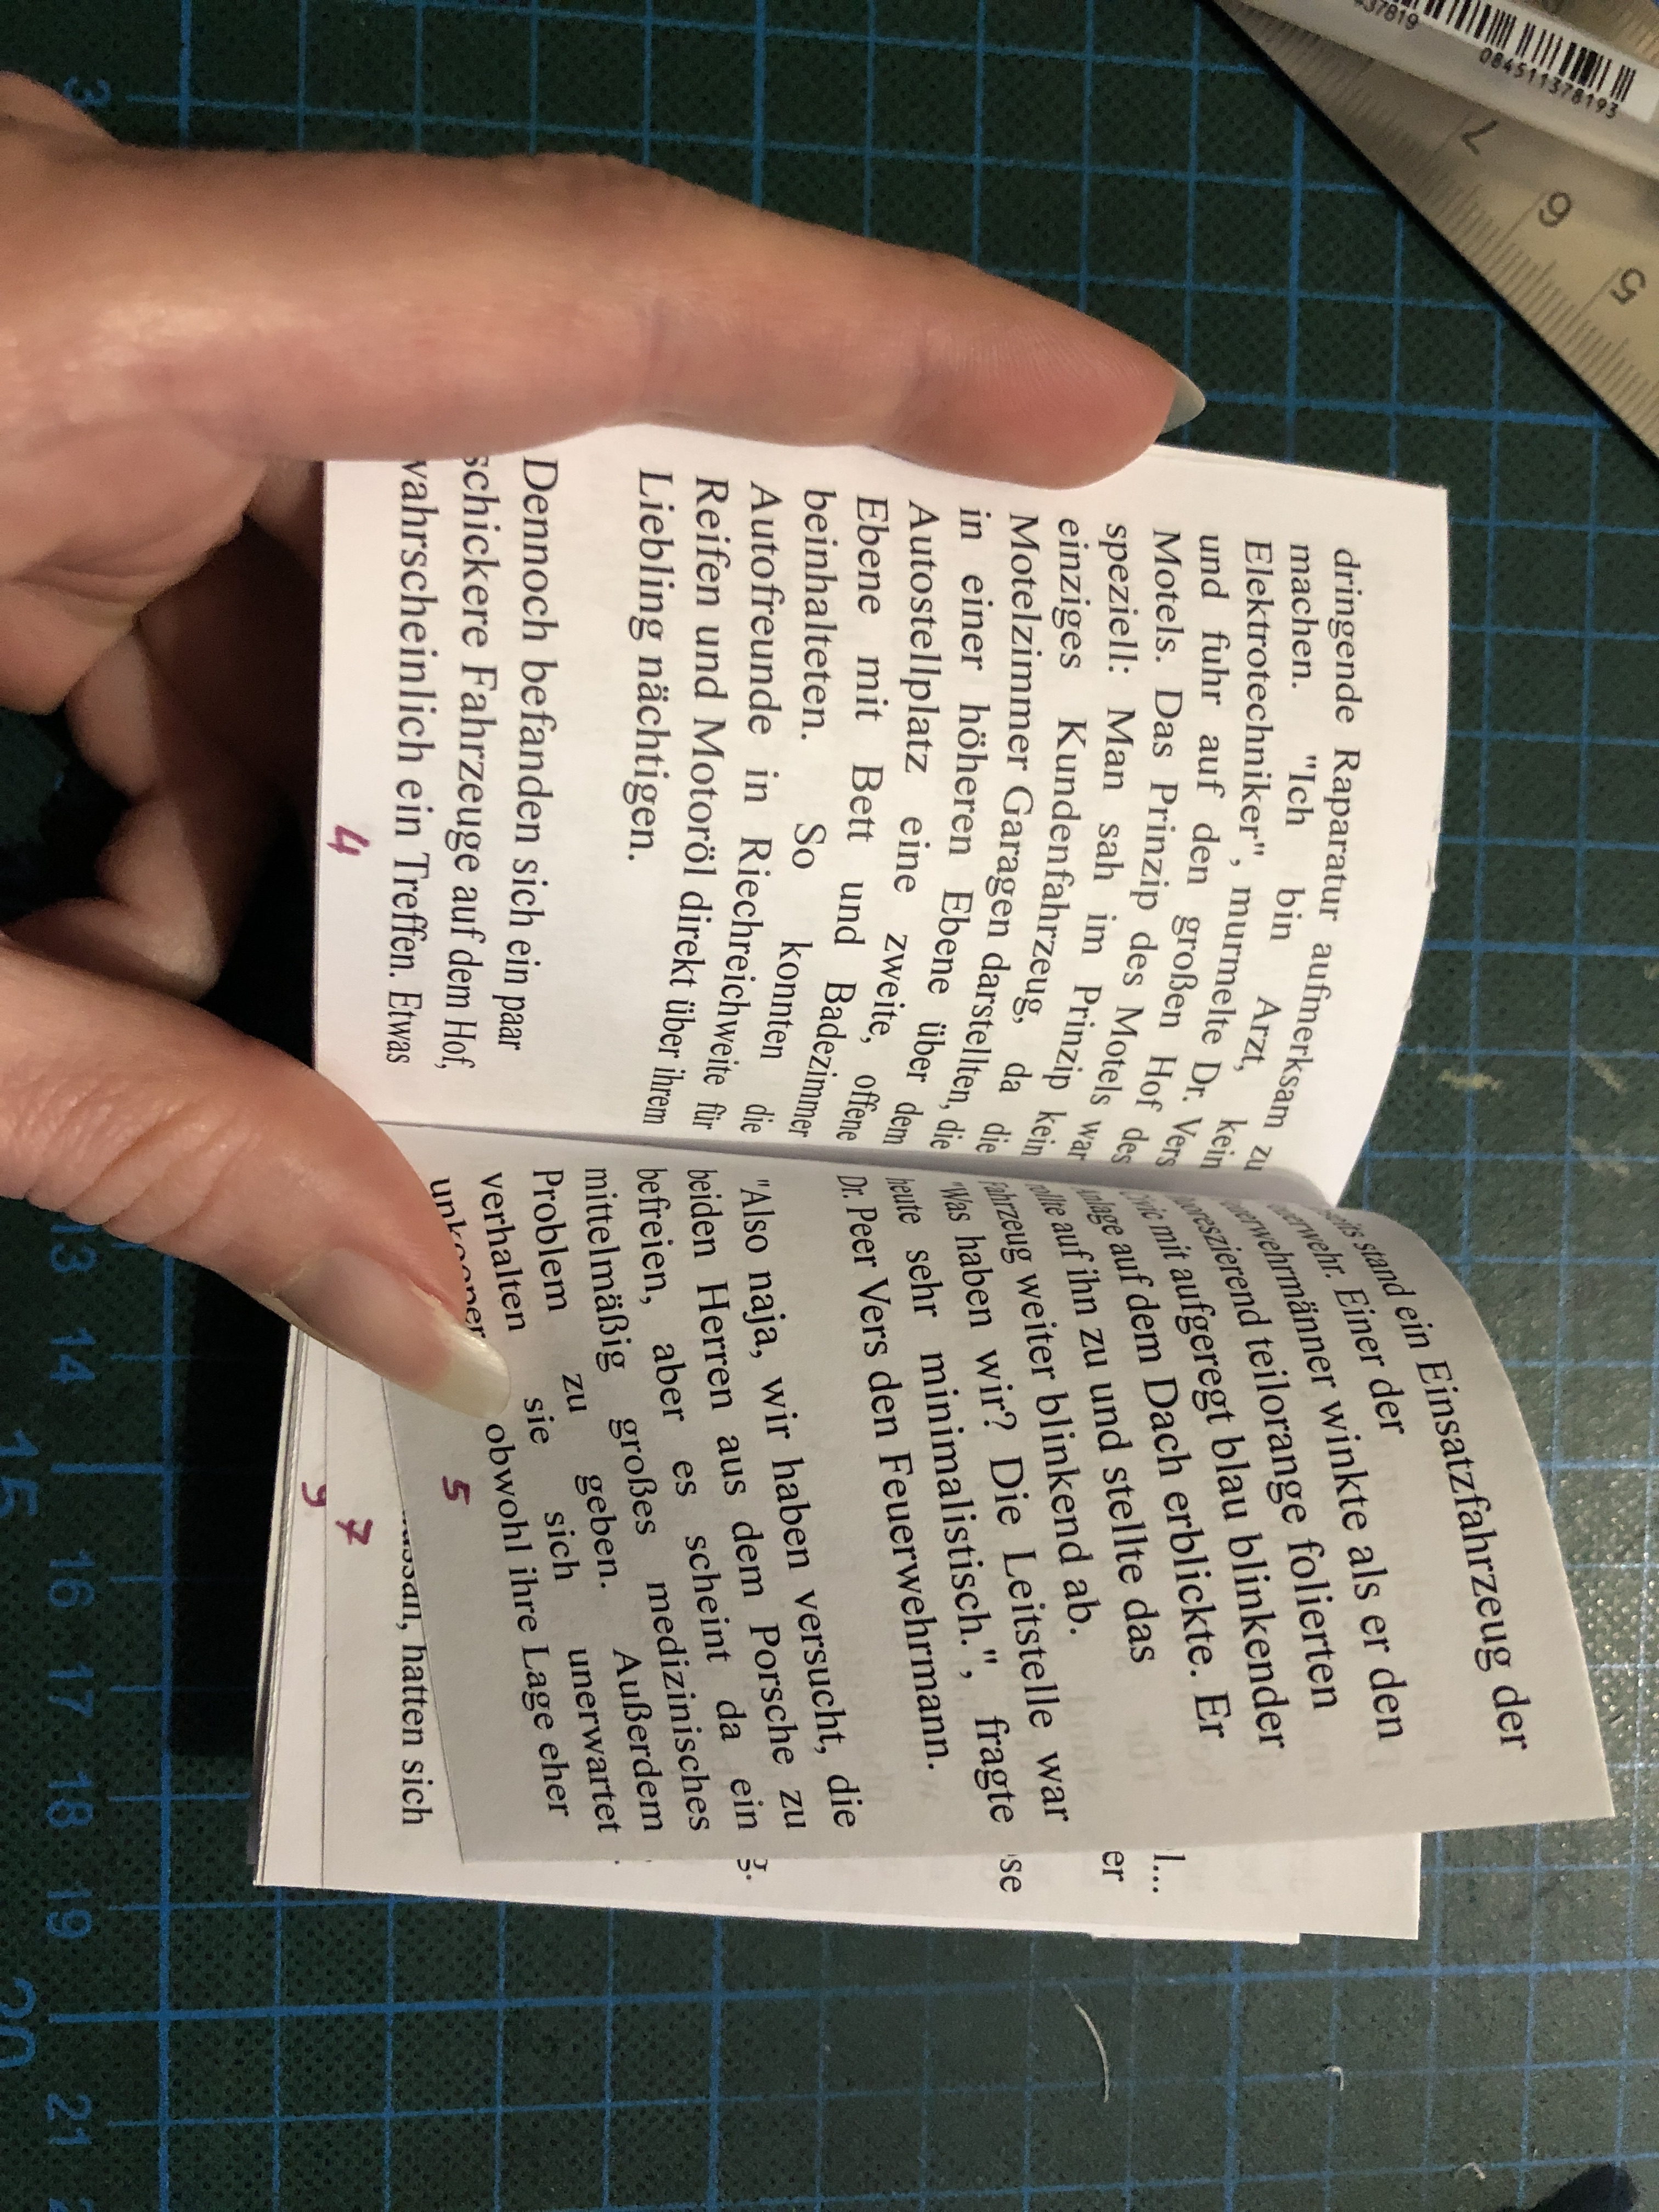 dringende Raparatur aufmerksam zu
machen. "Ich bin Arzt, kein
Elektrotechniker", murmelte Dr. Vers
und fuhr auf den großen Hof des
Motels. Das Prinzip des Motels war
speziell: Man sah im Prinzip kein
einziges Kundenfahrzeug, da die
Motelzimmer Garagen darstellten, die
in einer höheren Ebene über dem
Autostellplatz eine zweite, offene
Ebene mit Bett und Badezimmer
beinhalteten. So konnten die
Autofreunde in Riechreichweite für
Reifen und Motoröl direkt über ihrem
Liebling nächtigen.
Dennoch befanden sich ein paar
schickere Fahrzeuge auf dem Hof,
wahrscheinlich ein Treffen. Etwas
4
stand ein Einsatzfahrzeug der
Einer der
winkte als er den
teilorange folierten
mit aufgeregt blau blinkender
auf dem Dach erblickte. Er
auf ihn zu und stellte das
weiter blinkend ab.
"Was haben wir? Die Leitstelle war
heute sehr minimalistisch.", fragte
Dr. Peer Vers den Feuerwehrmann.
"Also naja, wir haben versucht, die
beiden Herren aus dem Porsche zu
befreien, aber es scheint da ein
mittelmäßig großes medizinisches
Problem zu geben. Außerdem
verhalten sie sich unerwartet
obwohl ihre Lage eher
5
hatten sich
7
9
er
se
g.
l...
084511378193
37819
7
6
5
3
13
14
15
16
17
18
19
20
21